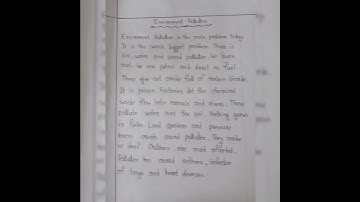 Environment Pollution
Environment Pollution is the main problem today.
It is the world biggest problem. There is
air, water and sound pollution. We burn
coal. We use petrol and diesel as fuel.
These give out smoke full of carbon dioxide.
It is poison factories let the chemical
waste flow into canals and rivers. These
pollute water and the soil. Nothing grows
in Loud speakers and pressure
horns cause sound pollution. They make
us deaf. Children are most affected.
Pollution has caused asthma, infection
of lungs and heart diseases.